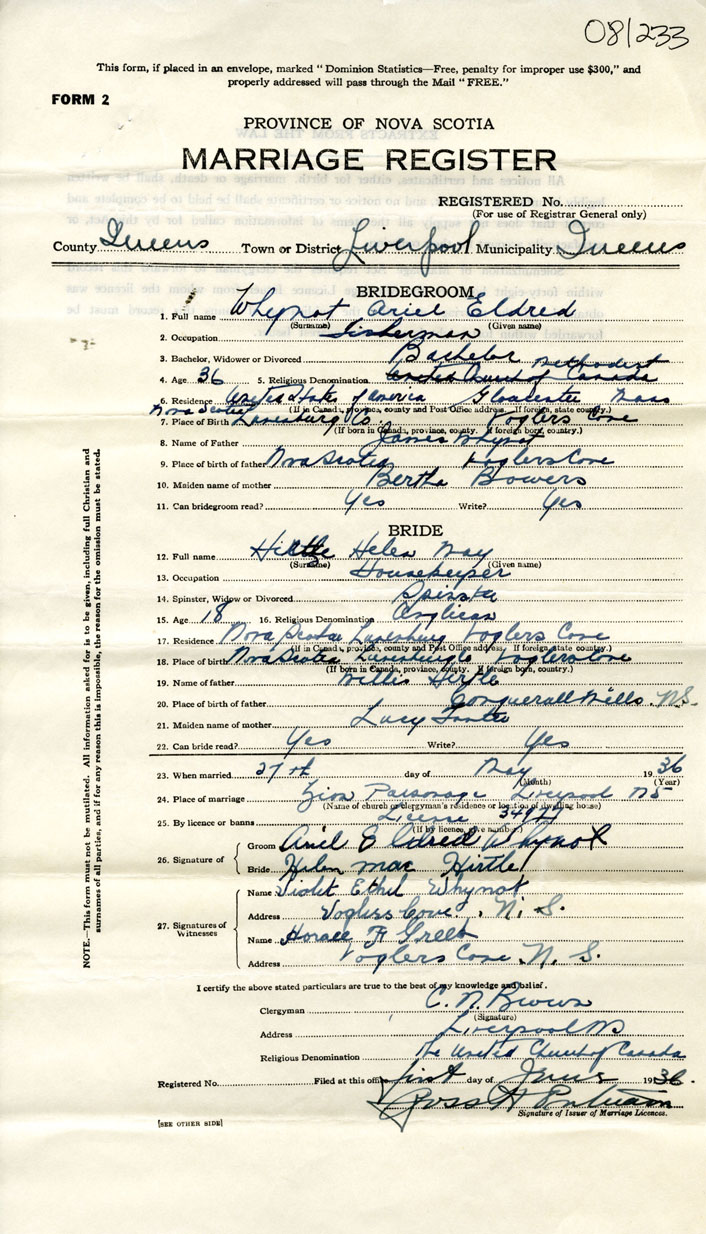 08/233
This form, if placed in an envelope, marked "Dominion Statistics—Free, penalty for improper use $300," and
properly addressed will pass through the Mail "FREE."
FORM 2
PROVINCE OF NOVA SCOTIA
MARRIAGE REGISTER
REGISTERED No.
(For use of Registrar General only)
County Queens Town or District Liverpool Municipality Queens
BRIDEGROOM
1. Full name Whynot Ariel Eldred
(Surname) (Given name)
2. Occupation Fisherman
3. Bachelor, Widower or Divorced Bachelor
Methodist
4. Age 36 5. Religious Denomination United Church of Canada
6. Residence United States of America Gloucester Mass
(If in Canada, province, county and Post Office address. If foreign, state country.)
Nova Scotia
7. Place of Birth Lunenburg Co. Voglers Cove
(If born in Canada, province, county. If foreign born, country.)
8. Name of Father James Whynot
9. Place of birth of father Nova Scotia Voglers Cove
10. Maiden name of mother Bertha Bowers
11. Can bridegroom read? Yes Write? Yes
BRIDE
12. Full name Hirtle Helen May
(Surname) (Given name)
13. Occupation Housekeeper
14. Spinster, Widow or Divorced Spinster
15. Age 18 16. Religious Denomination Anglican
17. Residence Nova Scotia Lunenburg Voglers Cove
(If in Canada, province, county and Post Office address. If foreign, state country.)
18. Place of birth Nova Scotia Lunenburg Voglers Cove
(If born in Canada, province, county. If foreign born, country.)
19. Name of father Willis Hirtle
20. Place of birth of father Conquerall Mills N.S.
21. Maiden name of mother Lucy
22. Can bride read? Yes Write? Yes
23. When married 27th day of May 1936
(Month) (Year)
24. Place of marriage Zion Parsonage Liverpool NS
(Name of church or clergyman's residence or location of dwelling house)
25. By licence or banns License
(If by licence, give number.)
26. Signature of
Groom Ariel Eldred Whynot
Bride Helen mae Hirtle
27. Signatures of Witnesses
Name Violet Ethel Whynot
Address Voglers Cove, N. S.
Name Horace
Address Voglers Cove N. S.
I certify the above stated particulars are true to the best of my knowledge and belief.
Clergyman C. N. Brown
(Signature)
Address Liverpool NS
Religious Denomination The United Church of Canada
Registered No. Filed at this office first day of June 1936.
Ross
Signature of Issuer of Marriage Licences.
[SEE OTHER SIDE]
NOTE.—This form must not be mutilated. All information asked for is to be given, including full Christian and
surnames of all parties, and if for any reason this is impossible, the reason for the omission must be stated.